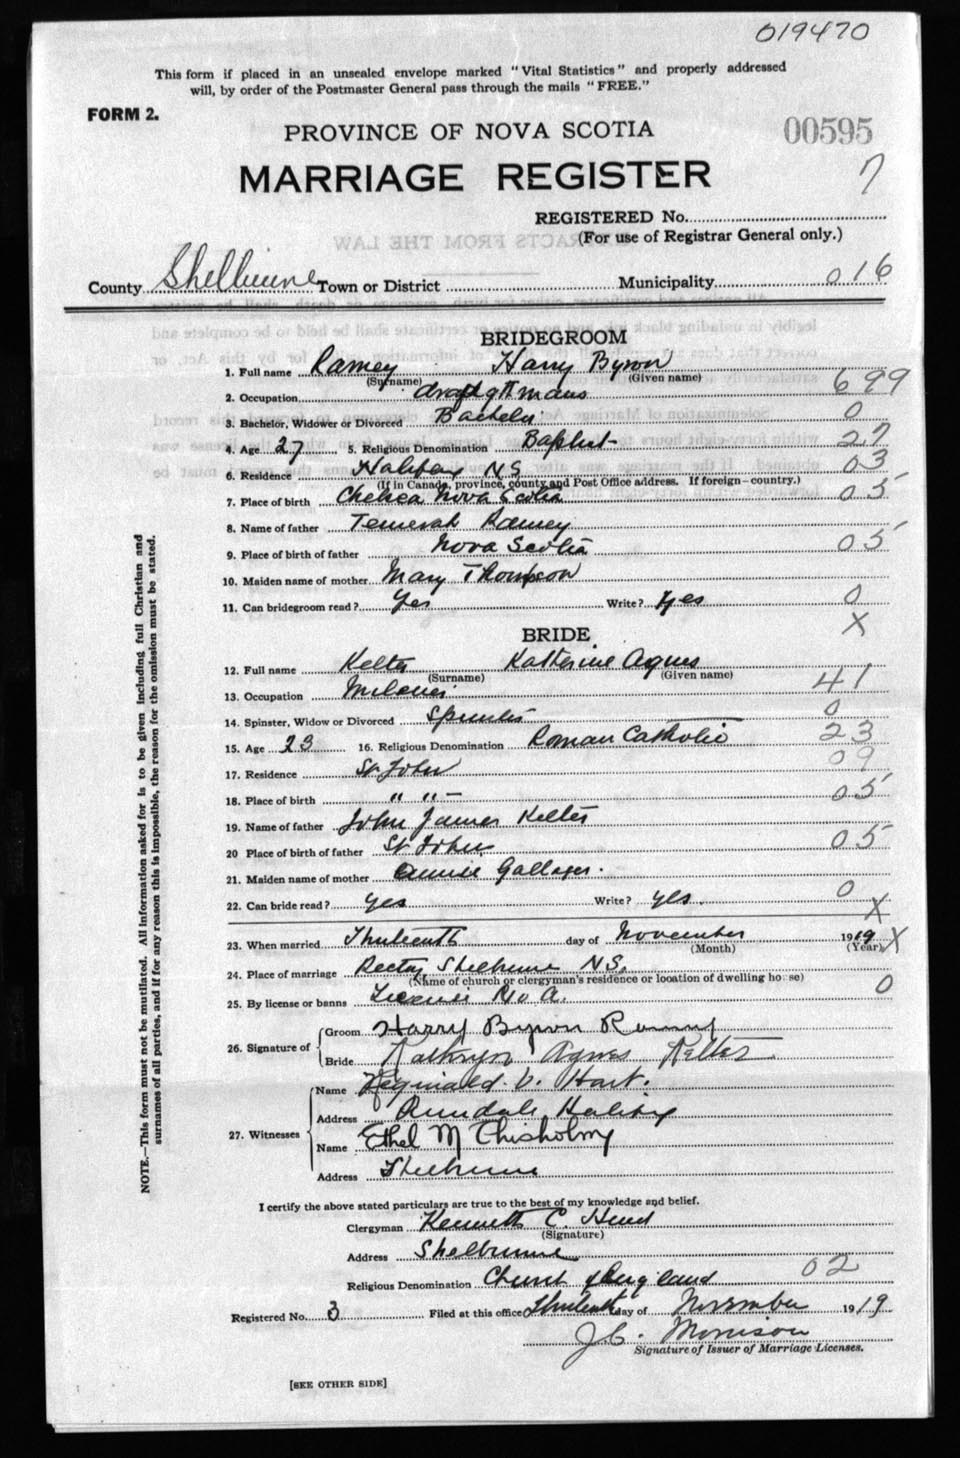 019470
This form if placed in an unsealed envelope marked "Vital Statistics" and properly addressed
will, by order of the Postmaster General pass through the mails "FREE."
FORM 2.
PROVINCE OF NOVA SCOTIA
00595
MARRIAGE REGISTER
7
REGISTERED No.
(For use of Registrar General only.)
County Shelburne Town or District Municipality 016
BRIDEGROOM
1. Full name Ramey Harry Byron
(Surname) (Given name)
2. Occupation 699
3. Bachelor, Widower or Divorced Bachelor 0
4. Age 27 5. Religious Denomination Baptist 27
6. Residence Halifax NS 03
(If in Canada, province, county and Post Office address. If foreign-country.)
7. Place of birth Chelsea Nova Scotia 05
8. Name of father Ramey
9. Place of birth of father Nova Scotia 05
10. Maiden name of mother Mary Thompson
11. Can bridegroom read? Yes Write? Yes 0
X
BRIDE
12. Full name Kelter Katherine Agnes
(Surname) (Given name)
13. Occupation 41
14. Spinster, Widow or Divorced Spinster 0
15. Age 23 16. Religious Denomination Roman Catholic 23
17. Residence St John 09
18. Place of birth " " — 05
19. Name of father John James Kelter
20 Place of birth of father St John 05
21. Maiden name of mother Annie Gallager.
22. Can bride read? yes Write? yes 0
X
23. When married Thirteenth day of November 1919 X
(Month) (Year)
24. Place of marriage Rectory Shelburne N.S.
(Name of church or clergyman's residence or location of dwelling house) 0
25. By license or banns License No A.
26. Signature of Groom Harry Byron Ramey
Bride Kathryn Agnes Kelter
27. Witnesses Name Reginald V. Hart.
Address Halifax
Name Ethel M Chisholm
Address Shelburne
I certify the above stated particulars are true to the best of my knowledge and belief.
Clergyman Kenneth C. Hind
(Signature)
Address Shelburne
Religious Denomination Church of England 02
Registered No. 3 Filed at this office Thirteenth day of November 1919
J.C. Morrison
Signature of Issuer of Marriage Licenses.
[SEE OTHER SIDE]
NOTE.—This form must not be mutilated. All information asked for is to be given including full Christian and
surnames of all parties, and if for any reason this is impossible, the reason for the omission must be stated.